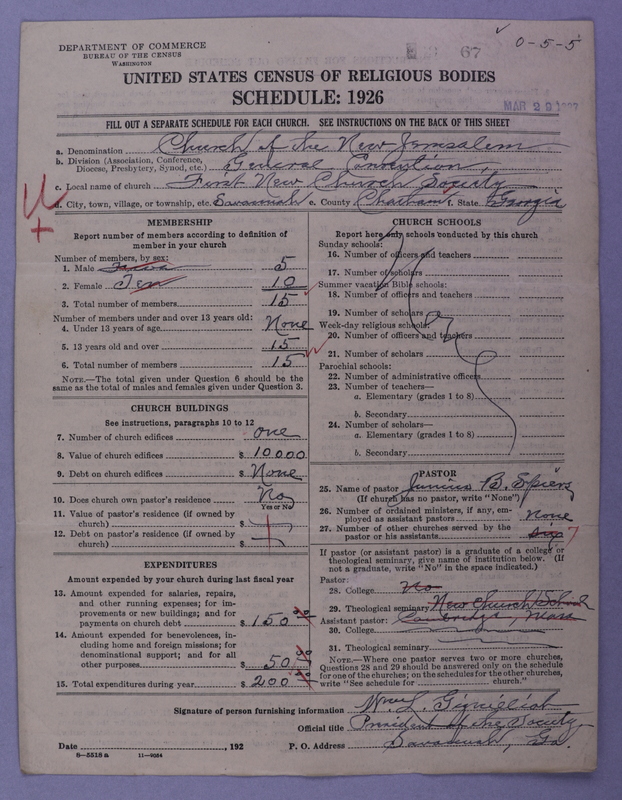 67
0-5-5
DEPARTMENT OF COMMERCE
BUREAU OF THE CENSUS
WASHINGTON
UNITED STATES CENSUS OF RELIGIOUS BODIES
SCHEDULE: 1926
MAR 29 1927
FILL OUT A SEPARATE SCHEDULE FOR EACH CHURCH. SEE INSTRUCTIONS ON THE BACK OF THIS SHEET
a. Denomination Church of the New Jerusalem
b. Division (Association, Conference, Diocese, Presbytery, Synod, etc.) General Convention,
c. Local name of church First New Church Society
d. City, town, village, or township, etc. Savannah e. County Chatham f. State Georgia
MEMBERSHIP
Report number of members according to definition of
member in your church
Number of members, by sex:
1. Male 5
2. Female Ten 10
3. Total number of members 15
Number of members under and over 13 years old:
4. Under 13 years of age None
5. 13 years old and over 15
6. Total number of members 15
NOTE.—The total given under Question 6 should be
same as the total of males and females given under Question 3.
CHURCH BUILDINGS
See instructions, paragraphs 10 to 12
7. Number of church edifices one
8. Value of church edifices $ 10000
9. Debt on church edifices $ None
10. Does church own pastor's residence No
Yes or No
11. Value of pastor's residence (if owned by
church) $
12. Debt on pastor's residence (if owned by
church) $
EXPENDITURES
Amount expended by your church during last fiscal year
13. Amount expended for salaries, repairs,
and other running expenses; for im-
provements or new buildings; and for
payments on church debt $ 150 00
14. Amount expended for benevolences, in-
cluding home and foreign missions; for
denominational support; and for all
other purposes $ 50 00
15. Total expenditures during year $ 200 00
CHURCH SCHOOLS
Report here only schools conducted by this church
Sunday schools:
16. Number of officers and teachers
17. Number of scholars
Summer vacation Bible schools:
18. Number of officers and teachers
19. Number of scholars
Week-day religious schools:
20. Number of officers and teachers
21. Number of scholars
Parochial schools:
22. Number of administrative officers
23. Number of teachers—
a. Elementary (grades 1 to 8)
b. Secondary
24. Number of scholars—
a. Elementary (grades 1 to 8)
b. Secondary
PASTOR
25. Name of pastor Junius B. Spiers
(If church has no pastor, write "None")
26. Number of ordained ministers, if any, em-
ployed as assistant pastors none
27. Number of other churches served by the
pastor or his assistants six 7
If pastor (or assistant pastor) is a graduate of a college or
theological seminary, give name of institution below. (If
not a graduate, write "No" in the space indicated.)
Pastor:
28. College No
29. Theological seminary New Church School
Assistant pastor: Cambridge, Mass
30. College
31. Theological seminary
NOTE.—Where one pastor serves two or more churches,
Questions 28 and 29 should be answered only on the schedule
for one of the churches; on the schedules for the other churches,
write "See schedule for church."
Signature of person furnishing information Wm. L. Gignilliat
Official title President of the Society
Date , 192 P. O. Address Savannah, Ga.
8-5518 a 11-9054